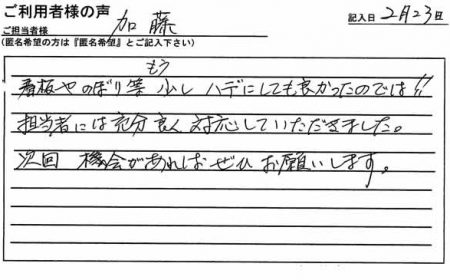 ご利用者様の声
ご担当者様 加藤 記入日 2月23日
(匿名希望の方は『匿名希望』とご記入下さい)
もう
看板やのぼり等 少し ハデにしても良かったのでは!!
担当者には充分良く対応していただきました。
次回 機会があればぜひお願いします。